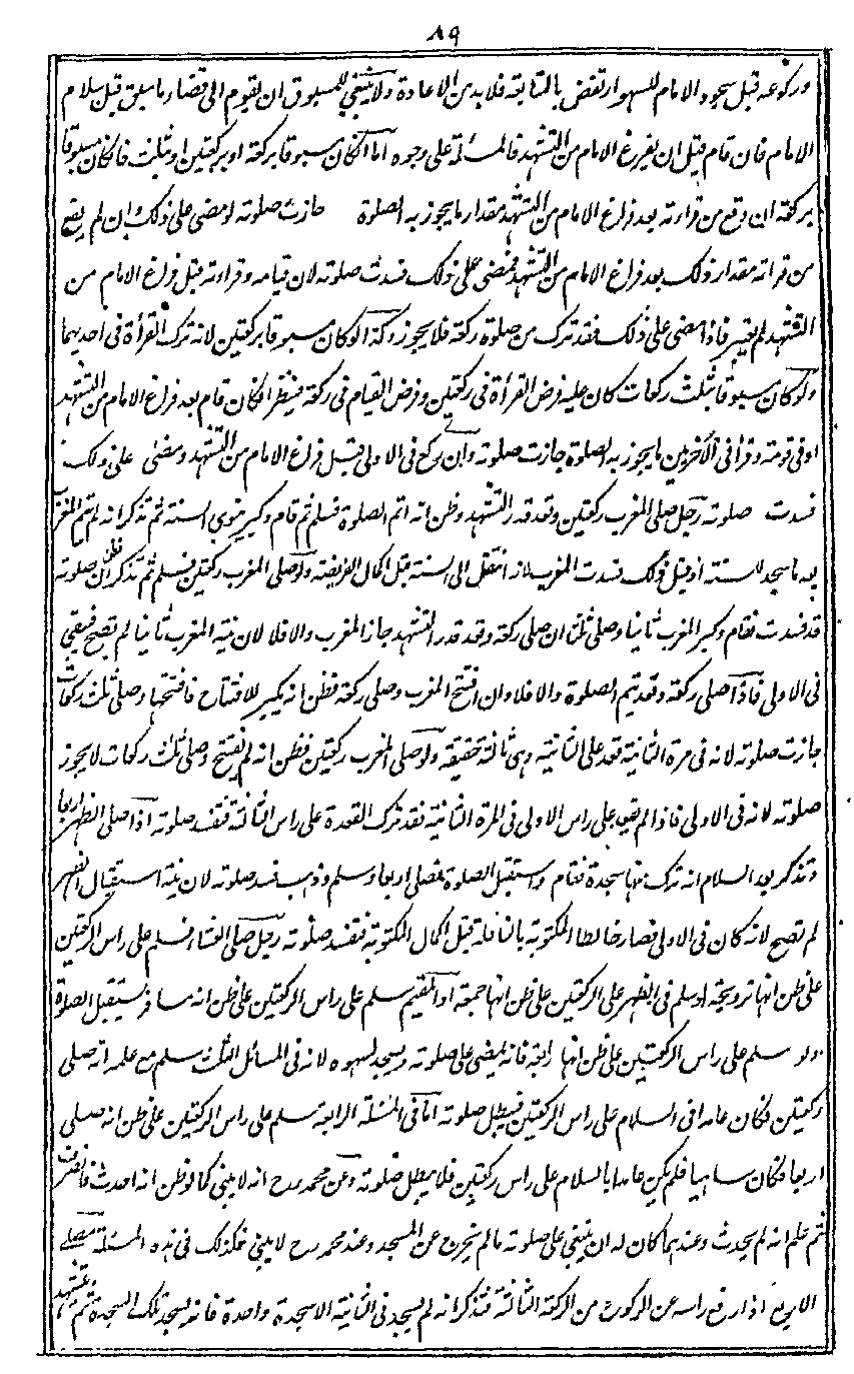 ٨٩
وركوعه قبل سجود الامام للسهو ارتفض بالمتابعة فلا بد من الاعادة ولا ينبغي للمسبوق ان يقوم الى قضاء ما سبق قبل سلام
الامام فان قام قبل ان يفرغ الامام من التشهد فالمسئلة على وجوه اما ان كان مسبوقا بركعة او بركعتين او بثلث فان كان مسبوقا
بركعة ان وقع من قراءته بعد فراغ الامام من التشهد مقدار ما يجوز به الصلوة جازت صلوته لو مضى على ذلك وان لم يقع
من قراءته مقدار ذلك بعد فراغ الامام من التشهد فمضى على ذلك فسدت صلوته لان قيامه وقراءته قبل فراغ الامام من
التشهد لم يعتبر فاذا مضى على ذلك فقد ترك من صلوته ركعة فلا يجوز وكذا لو كان مسبوقا بركعتين لانه ترك القرأة في احديهما
ولو كان مسبوقا بثلث ركعات كان عليه فرض القرأة في ركعتين وفرض القيام في ركعة فينظر ان كان قام بعد فراغ الامام من التشهد
او في قومته وقرأ في الأخريين ما يجوز به الصلوة جازت صلوته وان ركع في الاولى قبل فراغ الامام من التشهد ومضى على ذلك
فسدت صلوته رجل صلى المغرب ركعتين وقعد قدر التشهد وظن انه اتم الصلوة فسلم ثم قام وكبر ينوي السنة ثم تذكر انه لم يتم المغرب
بعد ما سجد للسنة او قبل ذلك فسدت المغرب لانه انتقل الى السنة قبل اكمال الفريضة ولو صلى المغرب ركعتين فسلم ثم تذكر فظن ان صلوته
قد فسدت فقام وكبر المغرب ثانيا وصلى ثلثا ان صلى ركعة وقعد قدر التشهد جاز المغرب والا فلا لان نية المغرب ثانيا لم تصح فبقي
في الاولى فاذا صلى ركعة وقعد تتم الصلوة والا فلا وان افتتح المغرب وصلى ركعة فظن انه لم يكبر للافتتاح فافتتحها وصلى ثلث ركعات
جازت صلوته لانه في مرة الثانية قعد على الثانية وهي ثالثة حقيقة ولو صلى المغرب ركعتين فظن انه لم يفتتح وصلى ثلث ركعات لا يجوز
صلوته لانه في الاولى فاذا لم يقعد على راس الاولى في المرة الثانية فقد ترك القعدة على راس الثالثة فتفسد صلوته اذا صلى الظهر اربعا
وتذكر بعد السلام انه ترك منها سجدة فقام واستقبل الصلوة فصلى اربعا وسلم وذهب فسد صلوته لان نية استقبال الظهر
لم تصح لانه كان في الاولى فصار خالطا المكتوبة بالنافلة قبل اكمال المكتوبة فتفسد صلوته رجل صلى العشاء فسلم على راس الركعتين
على ظن انها ترويحة او سلم في الظهر على الركعتين على ظن انها جمعة او المقيم سلم على راس الركعتين على ظن انه مسافر يستقبل الصلوة
ولو سلم على راس الركعتين على ظن انها رابعة فانه يمضي على صلوته ويسجد لسهوه لانه في المسائل الثلث سلم مع علمه انه صلى
ركعتين فكان عامدا في السلام على راس الركعتين فيبطل صلوته اما في المسئلة الرابعة سلم على راس الركعتين على ظن انه صلى
اربعا فكان ساهيا فلم يكن عامدا بالسلام على راس ركعتين فلا يبطل صلوته وعن محمد رح انه لا يبني كما لو ظن انه احدث فانصرف
ثم علم انه لم يحدث وعندهما كان له ان يبني على صلوته ما لم يخرج عن المسجد وعند محمد رح لا يبني فكذلك في هذه المسئلة مصلي
الاربع اذا رفع راسه عن الركوع من الركعة الثالثة فتذكر انه لم يسجد في الثانية الا سجدة واحدة فانه يسجد تلك السجدة ثم يتشهد